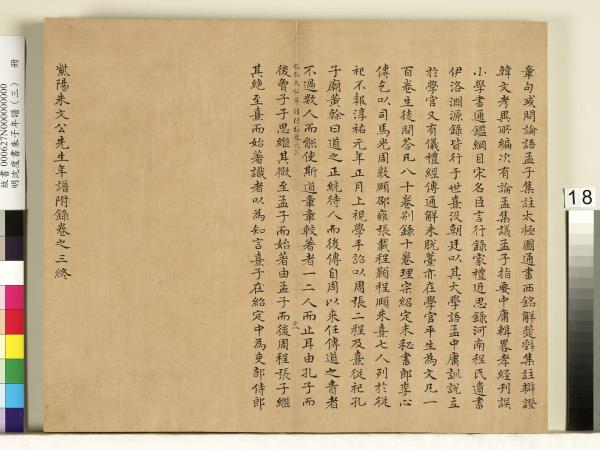 章句或問論語孟子集註太極圖通書西銘解楚辭集註辯證
韓文考異所編次有論孟集議孟子指要中庸輯畧孝經刊誤
小學書通鑑綱目宋名臣言行錄家禮近思錄河南程氏遺書
伊洛淵源錄皆行于世熹没朝廷以其大學語孟中庸訓說立
於學官又有儀禮經傳通解未脱藁亦在學官平生為文凡一
百卷生徒問答凡八十卷别錄十卷理宗紹定末秘書郎李心
傳乞以司馬光周敦頤邵雍張載程顥程頤朱熹七人列於從
祀不報淳祐元年正月上視學手詔以周張二程及熹從祀孔
子廟黃榦曰道之正統待人而後傳自周以來任傳道之責者
不過數人而能使斯道章章較著者一二人而止耳由孔子而
後曾子子思繼其微至孟子而始著由孟子而後周程張子繼
其絶至熹而始著識者以為知言熹子在紹定中為吏部侍郎
紫陽朱文公先生年譜附錄卷之三終
故書000627N000000000
明沈度書朱子年譜（三）
18